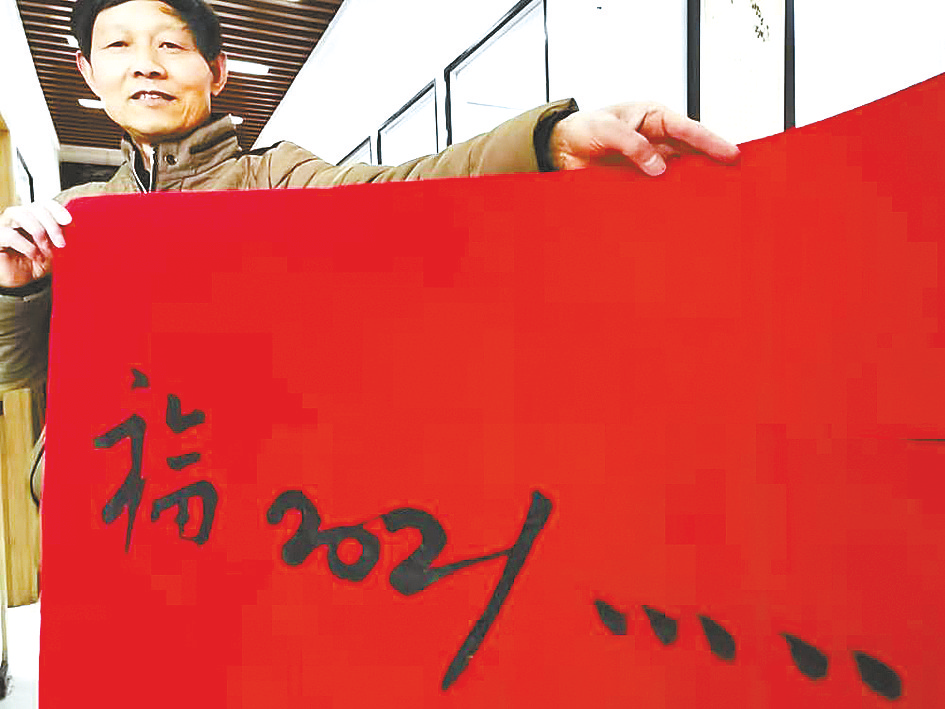 福2021.....